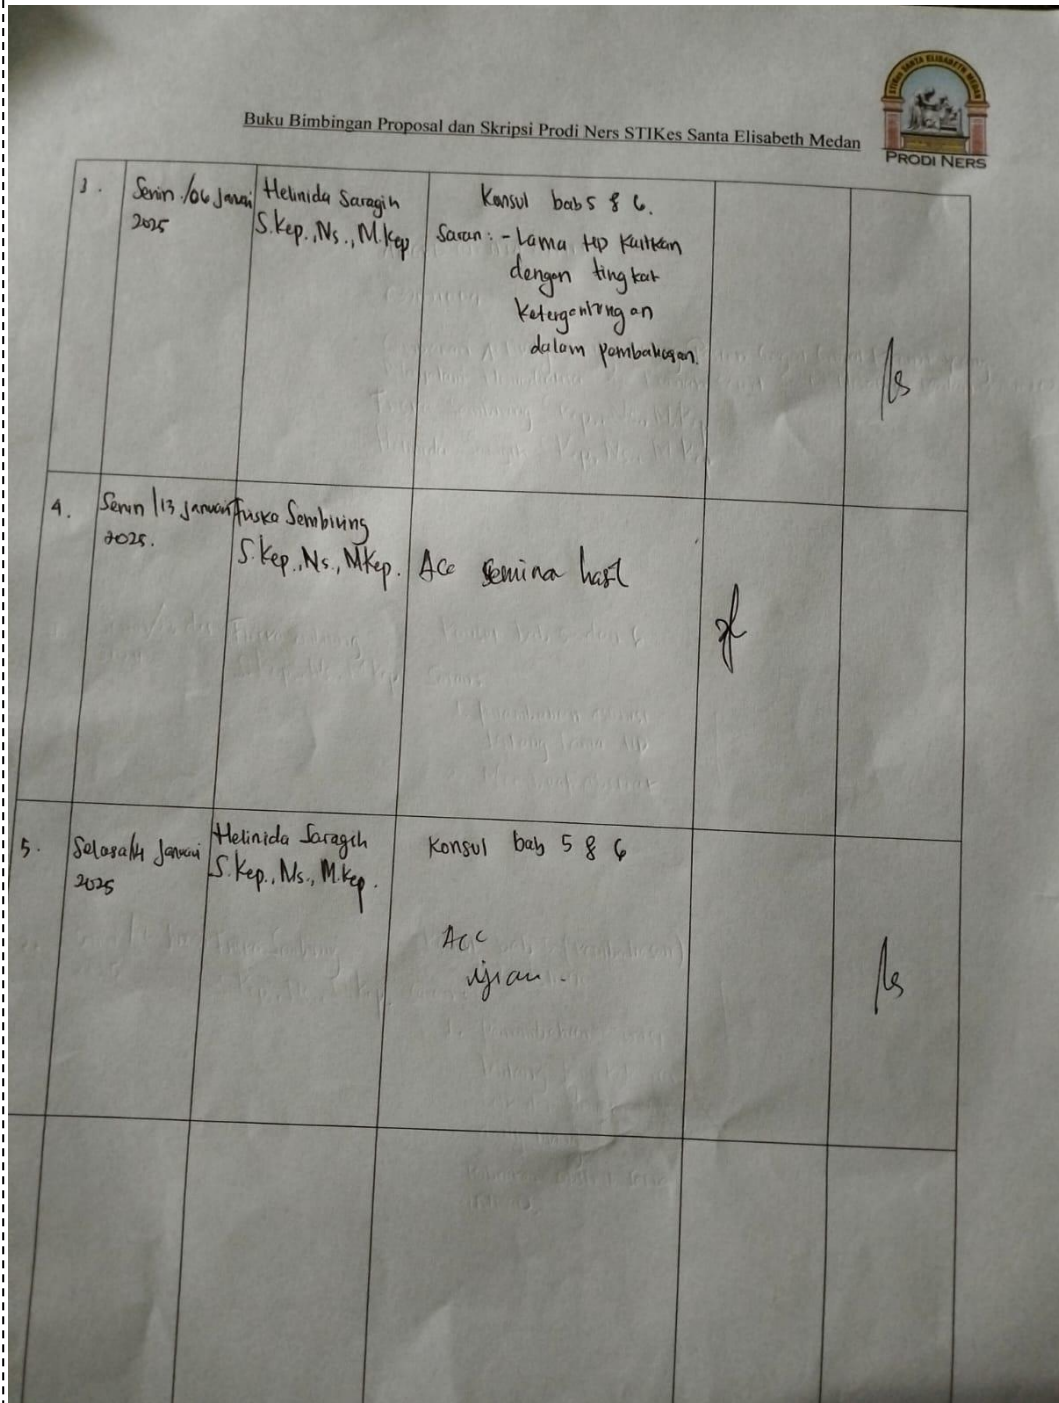 STIKes SANTA ELISABETH MEDAN
PRODI NERS
Buku Bimbingan Proposal dan Skripsi Prodi Ners STIKes Santa Elisabeth Medan
3. Senin /06 Januari 2025
Helinida Saragih
S.Kep.,Ns., M.Kep
Konsul bab 5 & 6.
Saran: - Lama HD Kaitkan
dengan tingkat
Ketergantungan
dalam pembahasan.
4. Senin /13 Januari
2025.
Sembiring
S.Kep.,Ns., MKep.
Acc seminar hasil
5. Selasa/14 Januari
2025
Helinida Saragih
S.Kep., Ns., M.Kep.
Konsul bab 5 & 6
Acc
ujian.